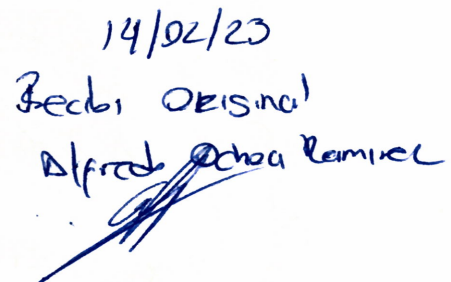 14/02/23
Recibi Original
Alfredo Ochoa Ramirez